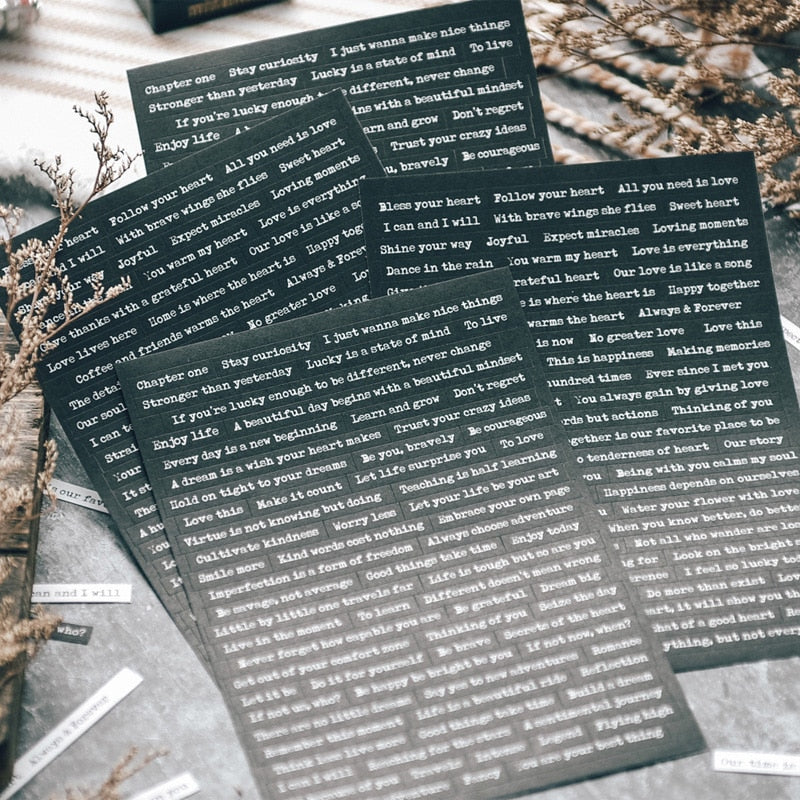 Chapter one Stay curiosity I just wanna make nice things
Stronger than yesterday Lucky is a state of mind To live
If you're lucky enough to be different, never change
Enjoy life ins with a beautiful mindset
arn and grow Don't regret
Trust your crazy ideas
u, bravely Be courageous
heart Follow your heart All you need is love
nd I will With brave wings she flies Sweet heart
your way Joyful Expect miracles Loving moments
You warm my heart Love is everything
Give thanks with a grateful heart Our love is like a so
Love lives here Home is where the heart is Happy tog
Coffee and friends warms the heart Always & Forev
The detai No greater love Lo
Our soul
I can t
Strai
Your
It st
The
A hu
You
Bless your heart Follow your heart All you need is love
I can and I will With brave wings she flies Sweet heart
Shine your way Joyful Expect miracles Loving moments
Dance in the rain You warm my heart Love is everything
grateful heart Our love is like a song
e is where the heart is Happy together
warms the heart Always & Forever
is now No greater love Love this
This is happiness Making memories
hundred times Ever since I met you
You always gain by giving love
rds but actions Thinking of you
gether is our favorite place to be
o tenderness of heart Our story
you Being with you calms my soul
Happiness depends on ourselves
Water your flower with love
When you know better, do bette
Not all who wander are los
ng for Look on the bright s
erence I feel so lucky to
Do more than exist Lov
art, it will show you th
hat of a good heart Bro
ything, but not every
Chapter one Stay curiosity I just wanna make nice things
Stronger than yesterday Lucky is a state of mind To live
If you're lucky enough to be different, never change
Enjoy life A beautiful day begins with a beautiful mindset
Every day is a new beginning Learn and grow Don't regret
A dream is a wish your heart makes Trust your crazy ideas
Hold on tight to your dreams Be you, bravely Be courageous
Love this Make it count Let life surprise you To love
Virtue is not knowing but doing Teaching is half learning
Cultivate kindness Worry less Let your life be your art
Smile more Kind words cost nothing Embrace your own page
Imperfection is a form of freedom Always choose adventure
Be savage, not average Good things take time Enjoy today
Little by little one travels far Life is tough but so are you
Live in the moment To learn Different doesn't mean wrong
Never forget how capable you are Be grateful Dream big
Get out of your comfort zone Thinking of you Seize the day
Let it be Do it for yourself Be brave Secrets of the heart
If not us, who? Be happy be bright be you If not now, when?
There are no little dreams Say yes to new adventures Romance
Remember this moment Life is a beautiful ride Reflection
Think less live more Good things take time Build a dream
I can & I will Reaching for the stars Sentimental journey
of you Travels Intense Joyful Flying high
adventure Enjoy You are your best thing
s our favo
can and I will
who?
Always & Forever
you
Our time is